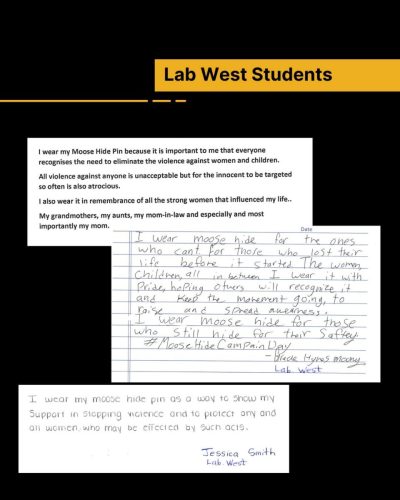 Lab West Students
I wear my Moose Hide Pin because it is important to me that everyone
recognises the need to eliminate the violence against women and children.
All violence against anyone is unacceptable but for the innocent to be targeted
so often is also atrocious.
I also wear it in remembrance of all the strong women that influenced my life..
My grandmothers, my aunts, my mom-in-law and especially and most
importantly my mom.
Date
I wear moose hide for the ones
who cant for those who lost their
life before it started The women,
Children, all in between I wear it with
Pride, hoping others will recognize it
and keep the movement going, to
raise and spread awareness.
I wear moose hide for those
who still hide for their Saftey
#MooseHideCampainDay
- Hynes
Lab. West
I wear my moose hide pin as a way to show my
Support in stopping violence and to protect any and
all women who may be effected by such acts.
Jessica Smith
Lab. West